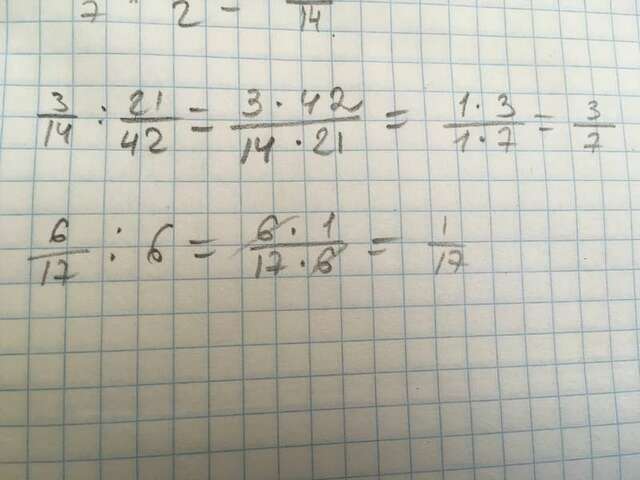 7 2 - 14
3/14 : 21/42 = 3 · 42/14 · 21 = 1 · 3/1 · 7 = 3/7
6/17 : 6 = 6 · 1/17 · 6 = 1/17